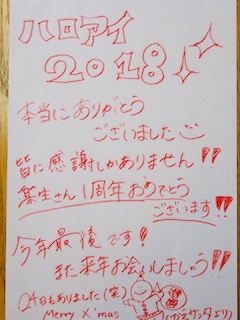 ハロアイ
2018
本当にありがとう
ございました
皆に感謝しかありません!!
楽生さん1周年おめでとう
ございます!!
今年最後です!
また来年お会いしましょう!!
もありました(笑)
Merry X'mas
サンタより)